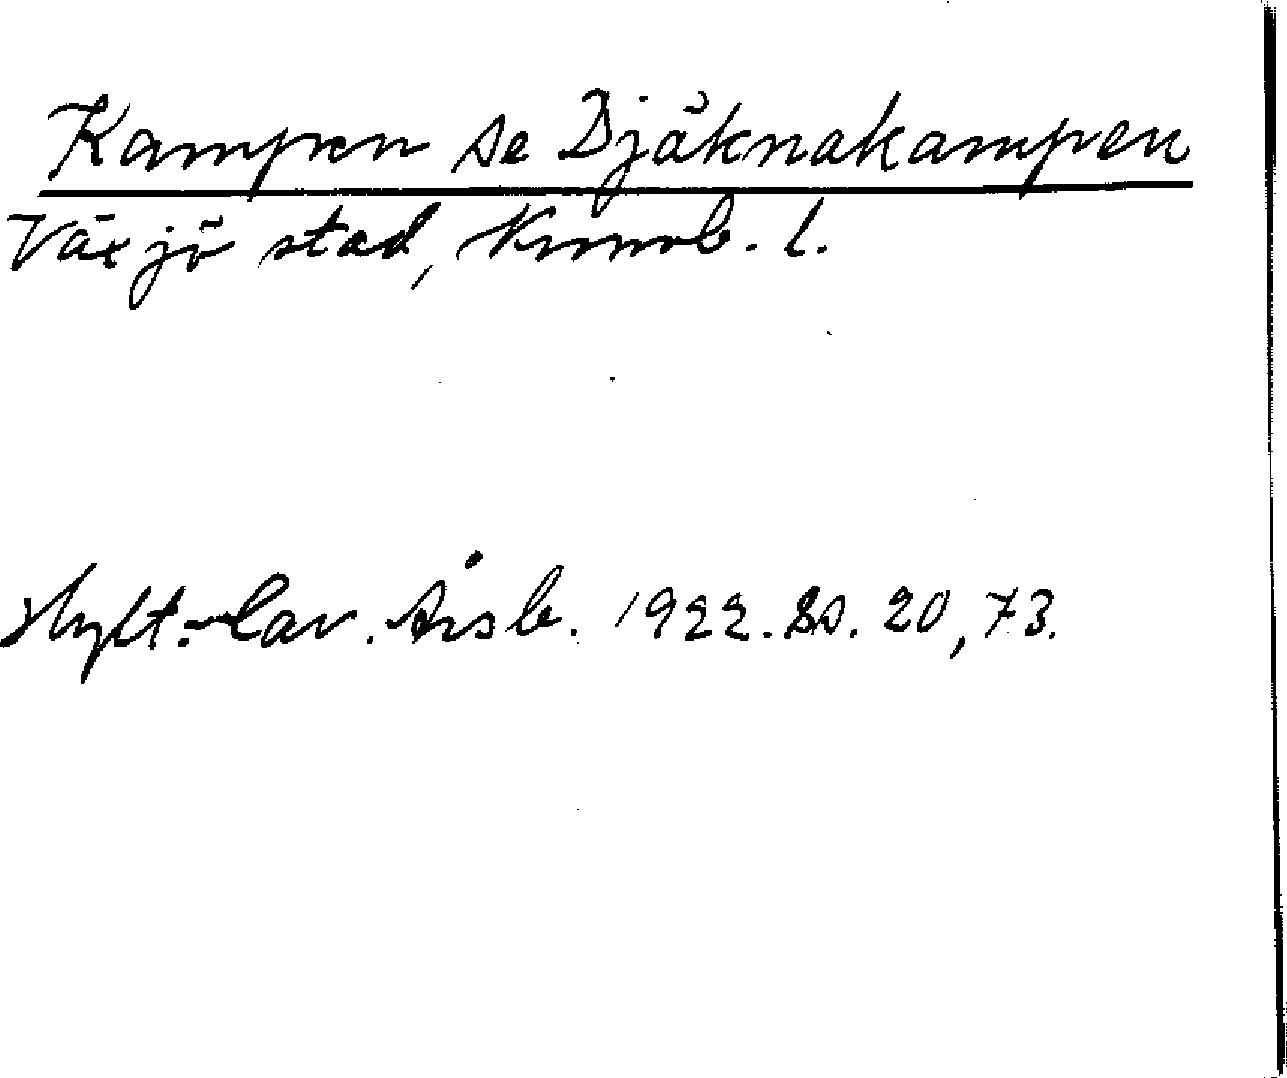 Kampen se Djäknakampen
Växjö stad, Kronob. l.
Hylt.-Cav. Årsb. 1922. Ss. 20, 73.